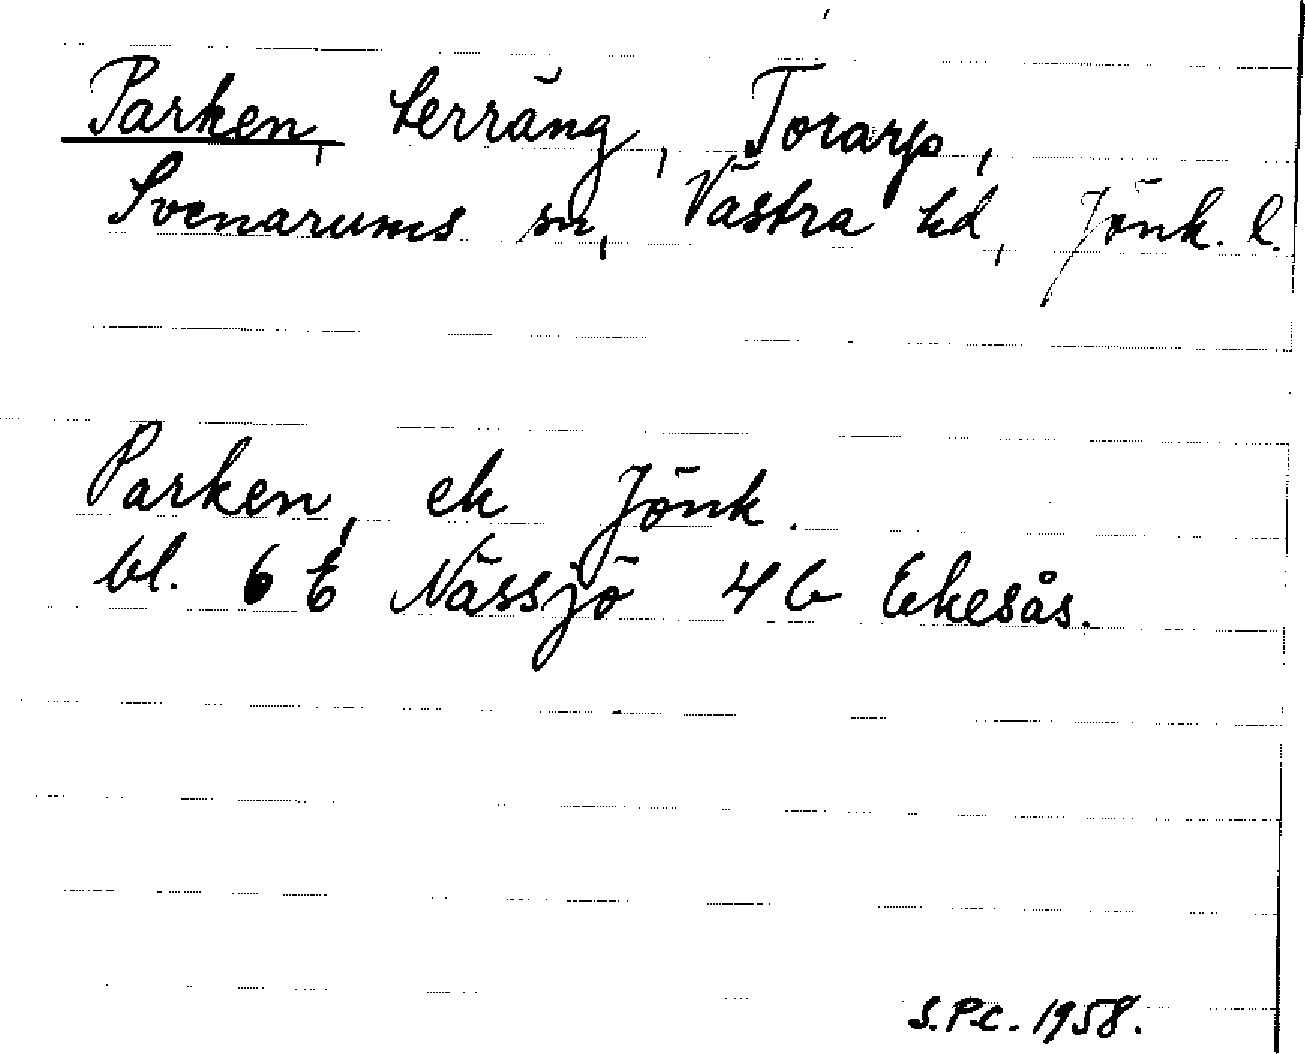 Parken, terräng, Torarp,
Svenarums sn, Västra hd, Jönk. l.
Parken, ek Jönk.
bl. 6 E Nässjö 4 b Ekesås.
S.P.C. 1958.